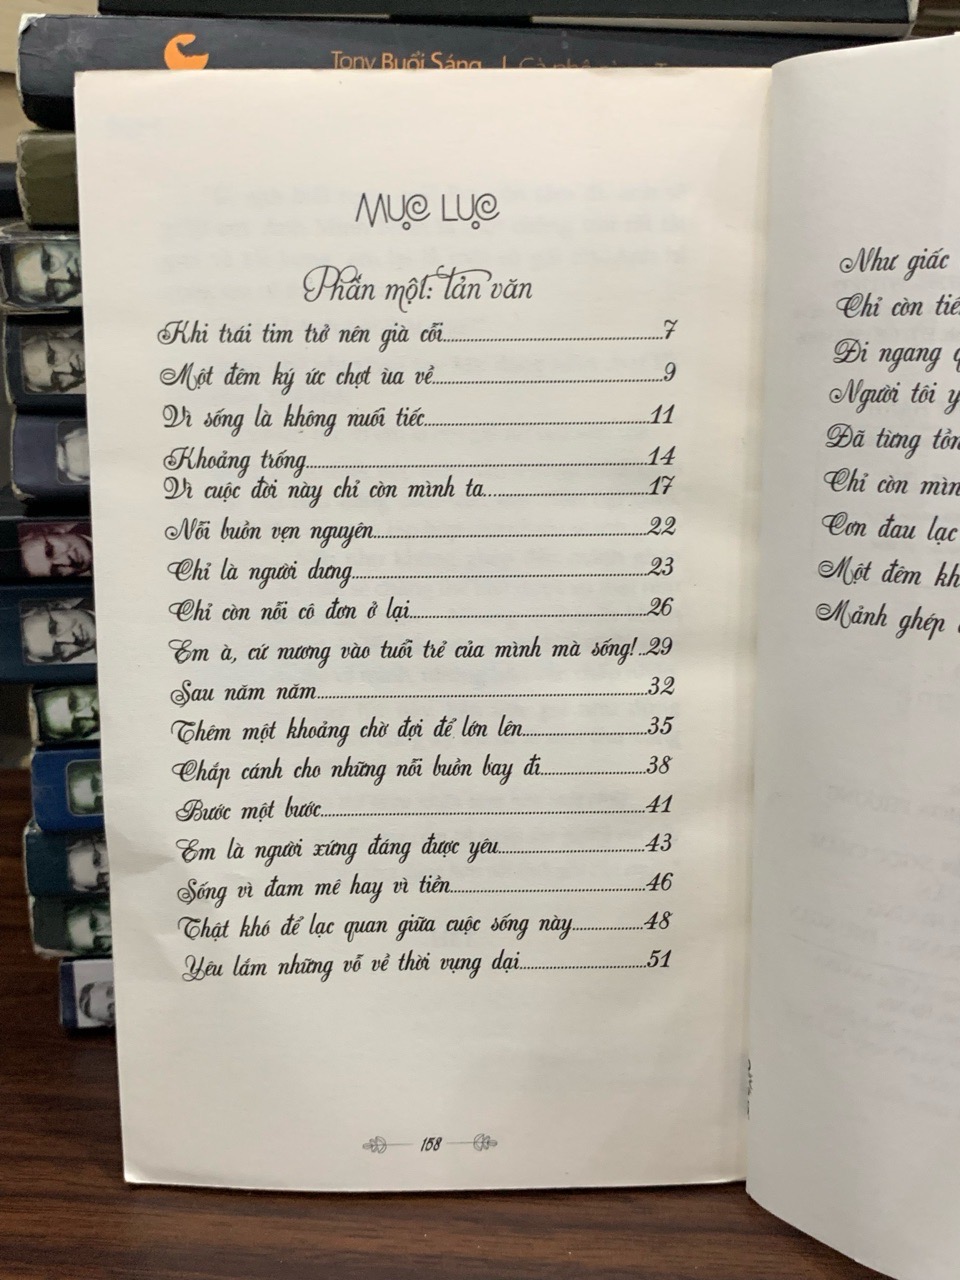 Tony Buổi Sáng
MỤC LỤC
Phần một: tản văn
Khi trái tim trở nên già cỗi.......7
Một đêm ký ức chợt ùa về.......9
Vì sống là không nuối tiếc.......11
Khoảng trống.......14
Vì cuộc đời này chỉ còn mình ta.......17
Nỗi buồn vẹn nguyên.......22
Chỉ là người dưng.......23
Chỉ còn nỗi cô đơn ở lại.......26
Em à, cứ nương vào tuổi trẻ của mình mà sống!...29
Sau năm năm.......32
Thêm một khoảng chờ đợi để lớn lên.......35
Chắp cánh cho những nỗi buồn bay đi.......38
Bước một bước.......41
Em là người xứng đáng được yêu.......43
Sống vì đam mê hay vì tiền.......46
Thật khó để lạc quan giữa cuộc sống này.......48
Yêu lắm những vỗ về thời vụng dại.......51
158
Như giấc
Chỉ còn
Đi ngang
Người tôi
Đã từng
Chỉ còn
Cơn đau lạc
Một đêm
Mảnh ghép